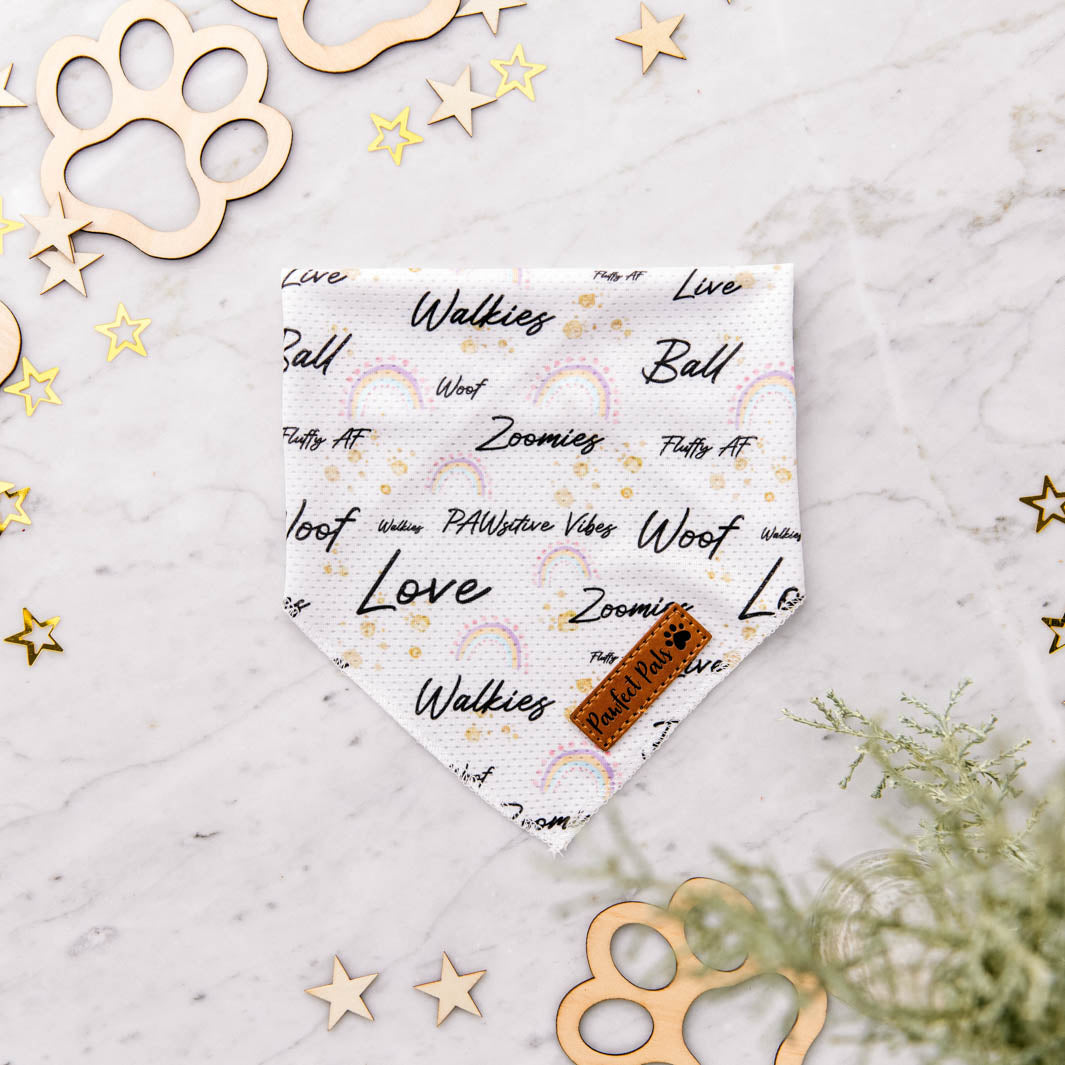 Live
Fluffy AF
Live
Walkies
Ball
Ball
Woof
Zoomies
Fluffy AF
Fluffy AF
Woof
Walkies
PAWsitive Vibes
Woof
Walkies
Love
Zoomies
Fluffy
Pawfect Pals
Walkies
Woof